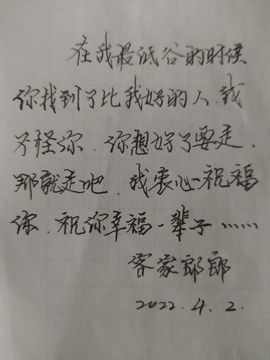 在我最低谷的时候
你找到了比我好的人.我
不怪你.你想好了要走.
那就走吧.我衷心祝福
你.祝你幸福一辈子……
客家郎郎
2022.4.2.